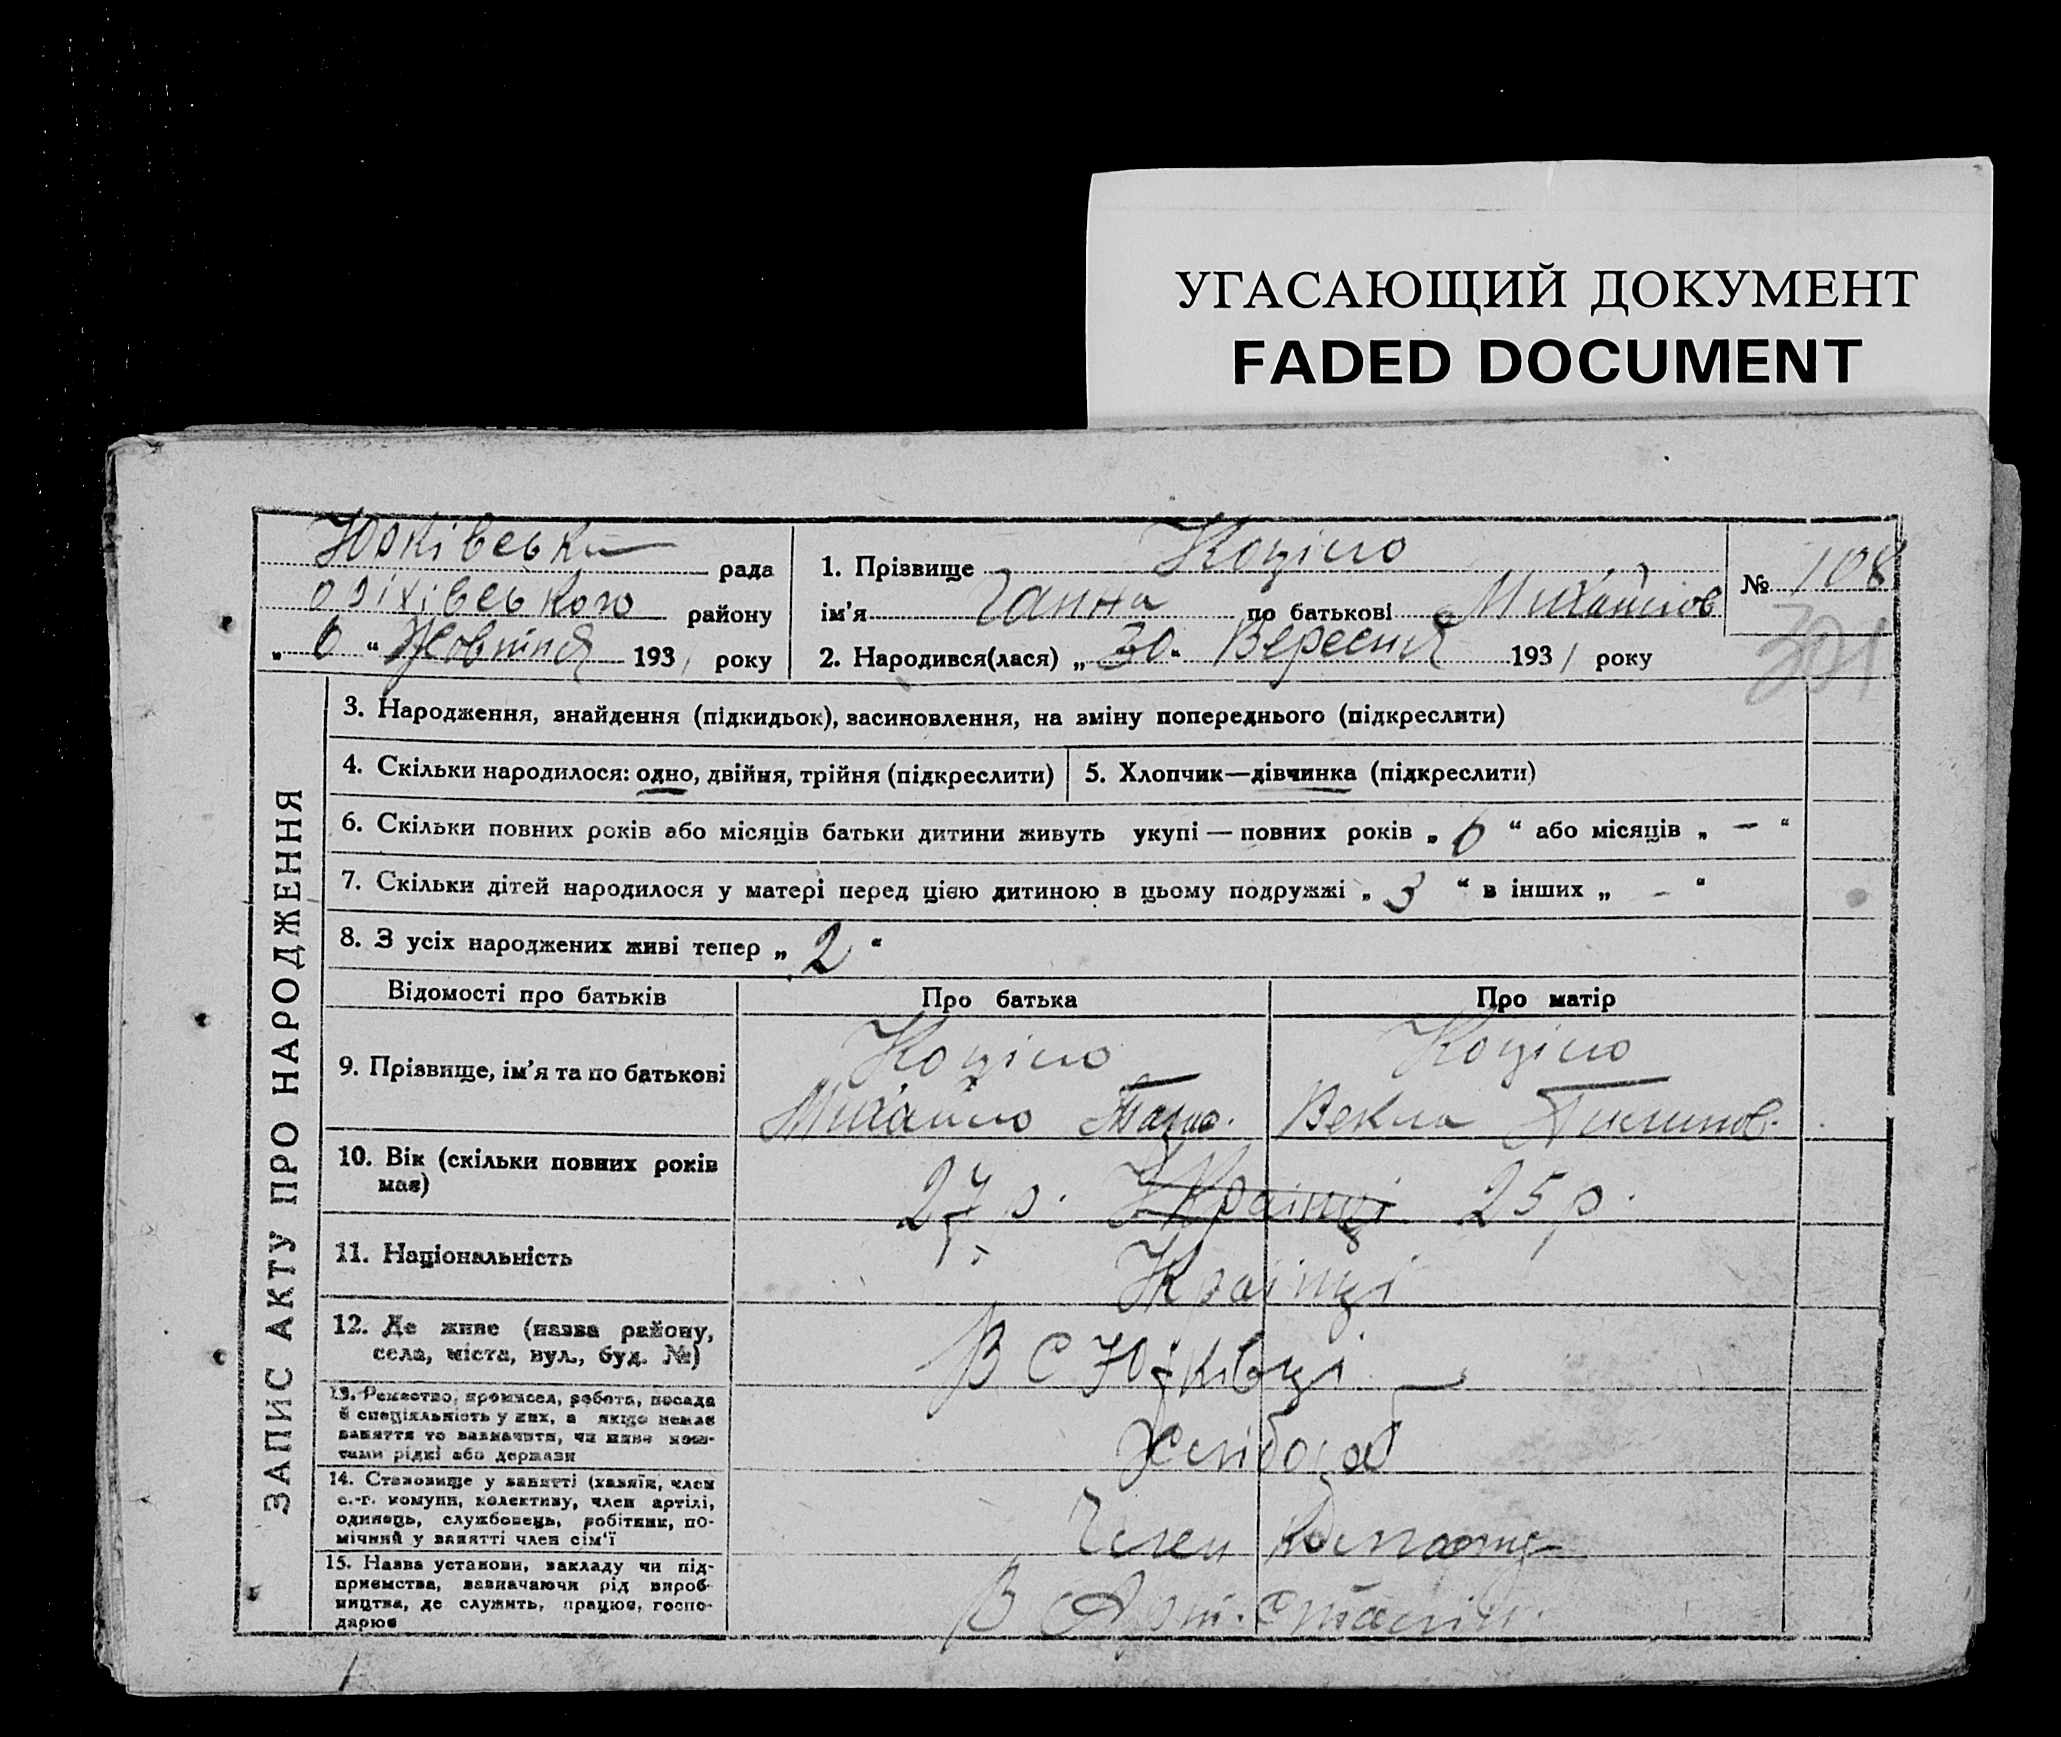 УГАСАЮЩИЙ ДОКУМЕНТ
FADED DOCUMENT
Юрківська рада
оріхівського району
„ 6 “ Жовтня 1931 року
1. Прізвище Коціло
ім’я Ганна по батькові Михайлов
2. Народився(лася) „ 30 “ Вересня 1931 року
№ 108
301
ЗАПИС АКТУ ПРО НАРОДЖЕННЯ
3. Народження, знайдення (підкидьок), засиновлення, на зміну попереднього (підкреслити)
4. Скільки народилося: одно, двійня, трійня (підкреслити)
5. Хлопчик—дівчинка (підкреслити)
6. Скільки повних років або місяців батьки дитини живуть укупі — повних років „ 6 “ або місяців „ — “
7. Скільки дітей народилося у матері перед цією дитиною в цьому подружжі „ 3 “ в інших „ - “
8. З усіх народжених живі тепер „ 2 “
Відомості про батьків
Про батька
Про матір
9. Прізвище, ім’я та по батькові
Коціло
Михайло
Коціло
Векла
10. Вік (скільки повних років має)
27 р. Країнці 25 р.
11. Національність
Країнці
12. Де живе (назва району, села, міста, вул., буд. №)
В С Юрківці
13. Ремество, промисел, робота, посада й спеціяльність у них, а якщо немає заняття то зазначити, чи живе коштами рідні або держави
Хлібороб
14. Становище у занятті (хазяїн, член с.-г. комуни, колективу, член артілі, одинець, службовець, робітник, помічний у занятті член сім‘ї
Член
15. Назва установи, закладу чи підприємства, зазначаючи рід виробництва, де служить, працює, господарює
В Арт. Сталін.